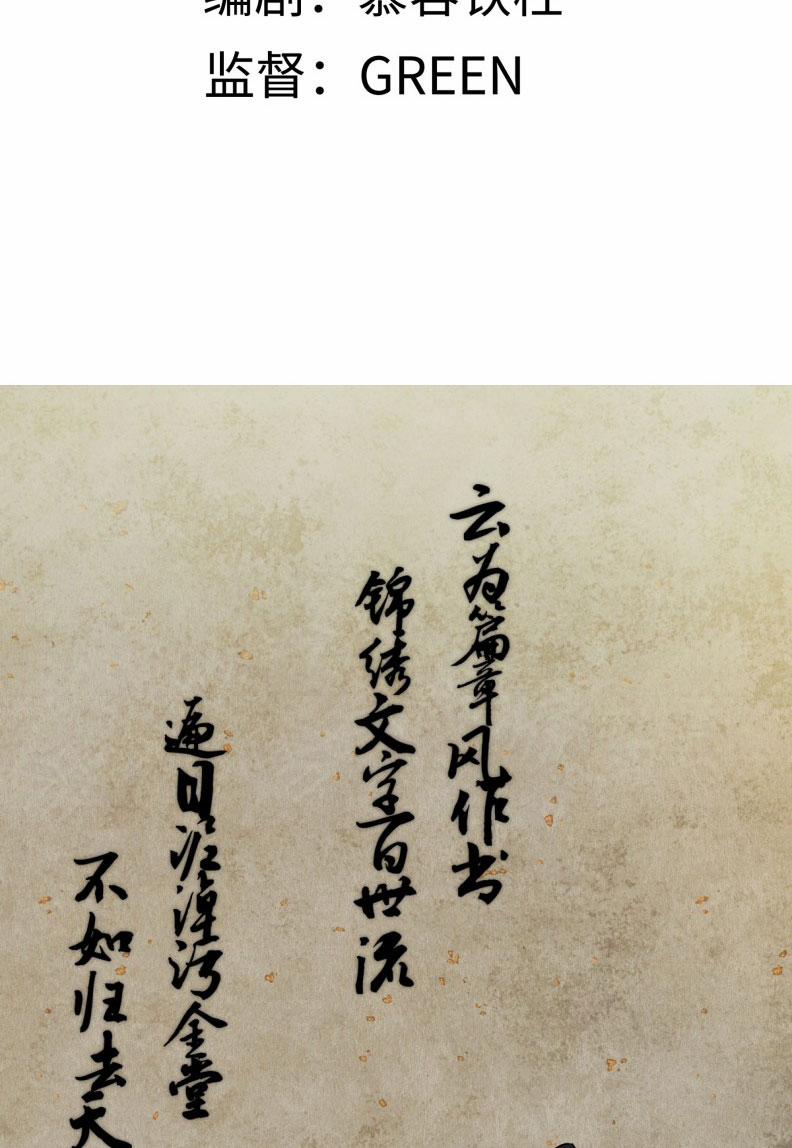 编剧：慕容铁柱
监督：GREEN
云为篇章风作书
锦绣文字百世流
遍目泥淖污金堂
不如归去天